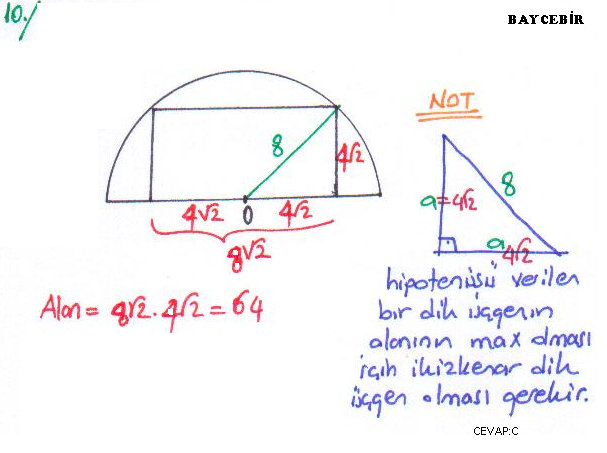 10./
BAYCEBİR
NOT
8
4√2
4√2
0
4√2
8√2
a=4√2
8
a 4√2
Alan = 8√2 . 4√2 = 64
hipotenüsü verilen
bir dik üçgenin
alanının max olması
için ikizkenar dik
üçgen olması gerekir.
CEVAP:C